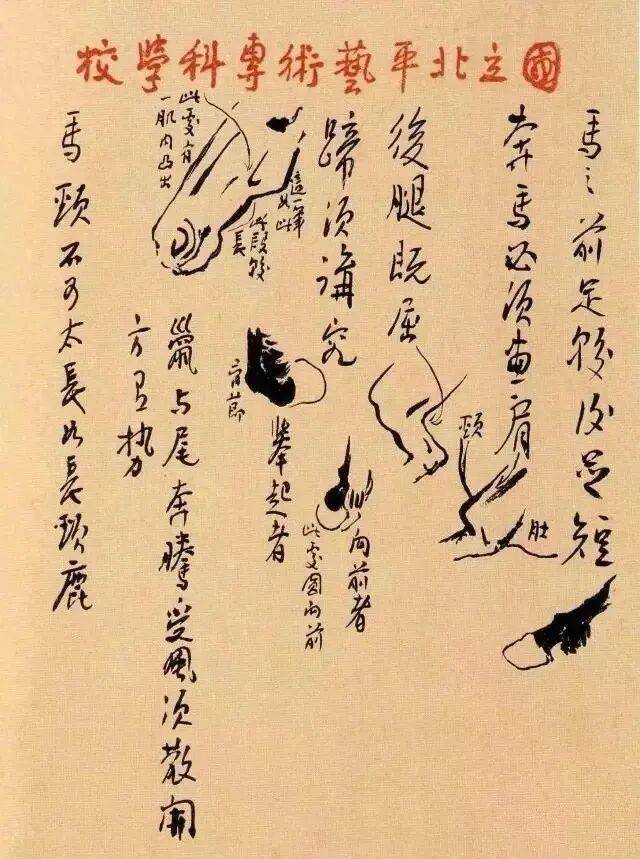 國立北平藝術專科學校
馬之前足較後足短
奔馬必須畫肩
後腿既屈
蹄須講究
鬣与尾奔騰受風須散開
方有勢
馬頸不可太長如長頸鹿
此處有
一肌肉凸出
這一筆
如此
此段較
長
有節
舉起者
向前者
此處圓向前
頸
肚